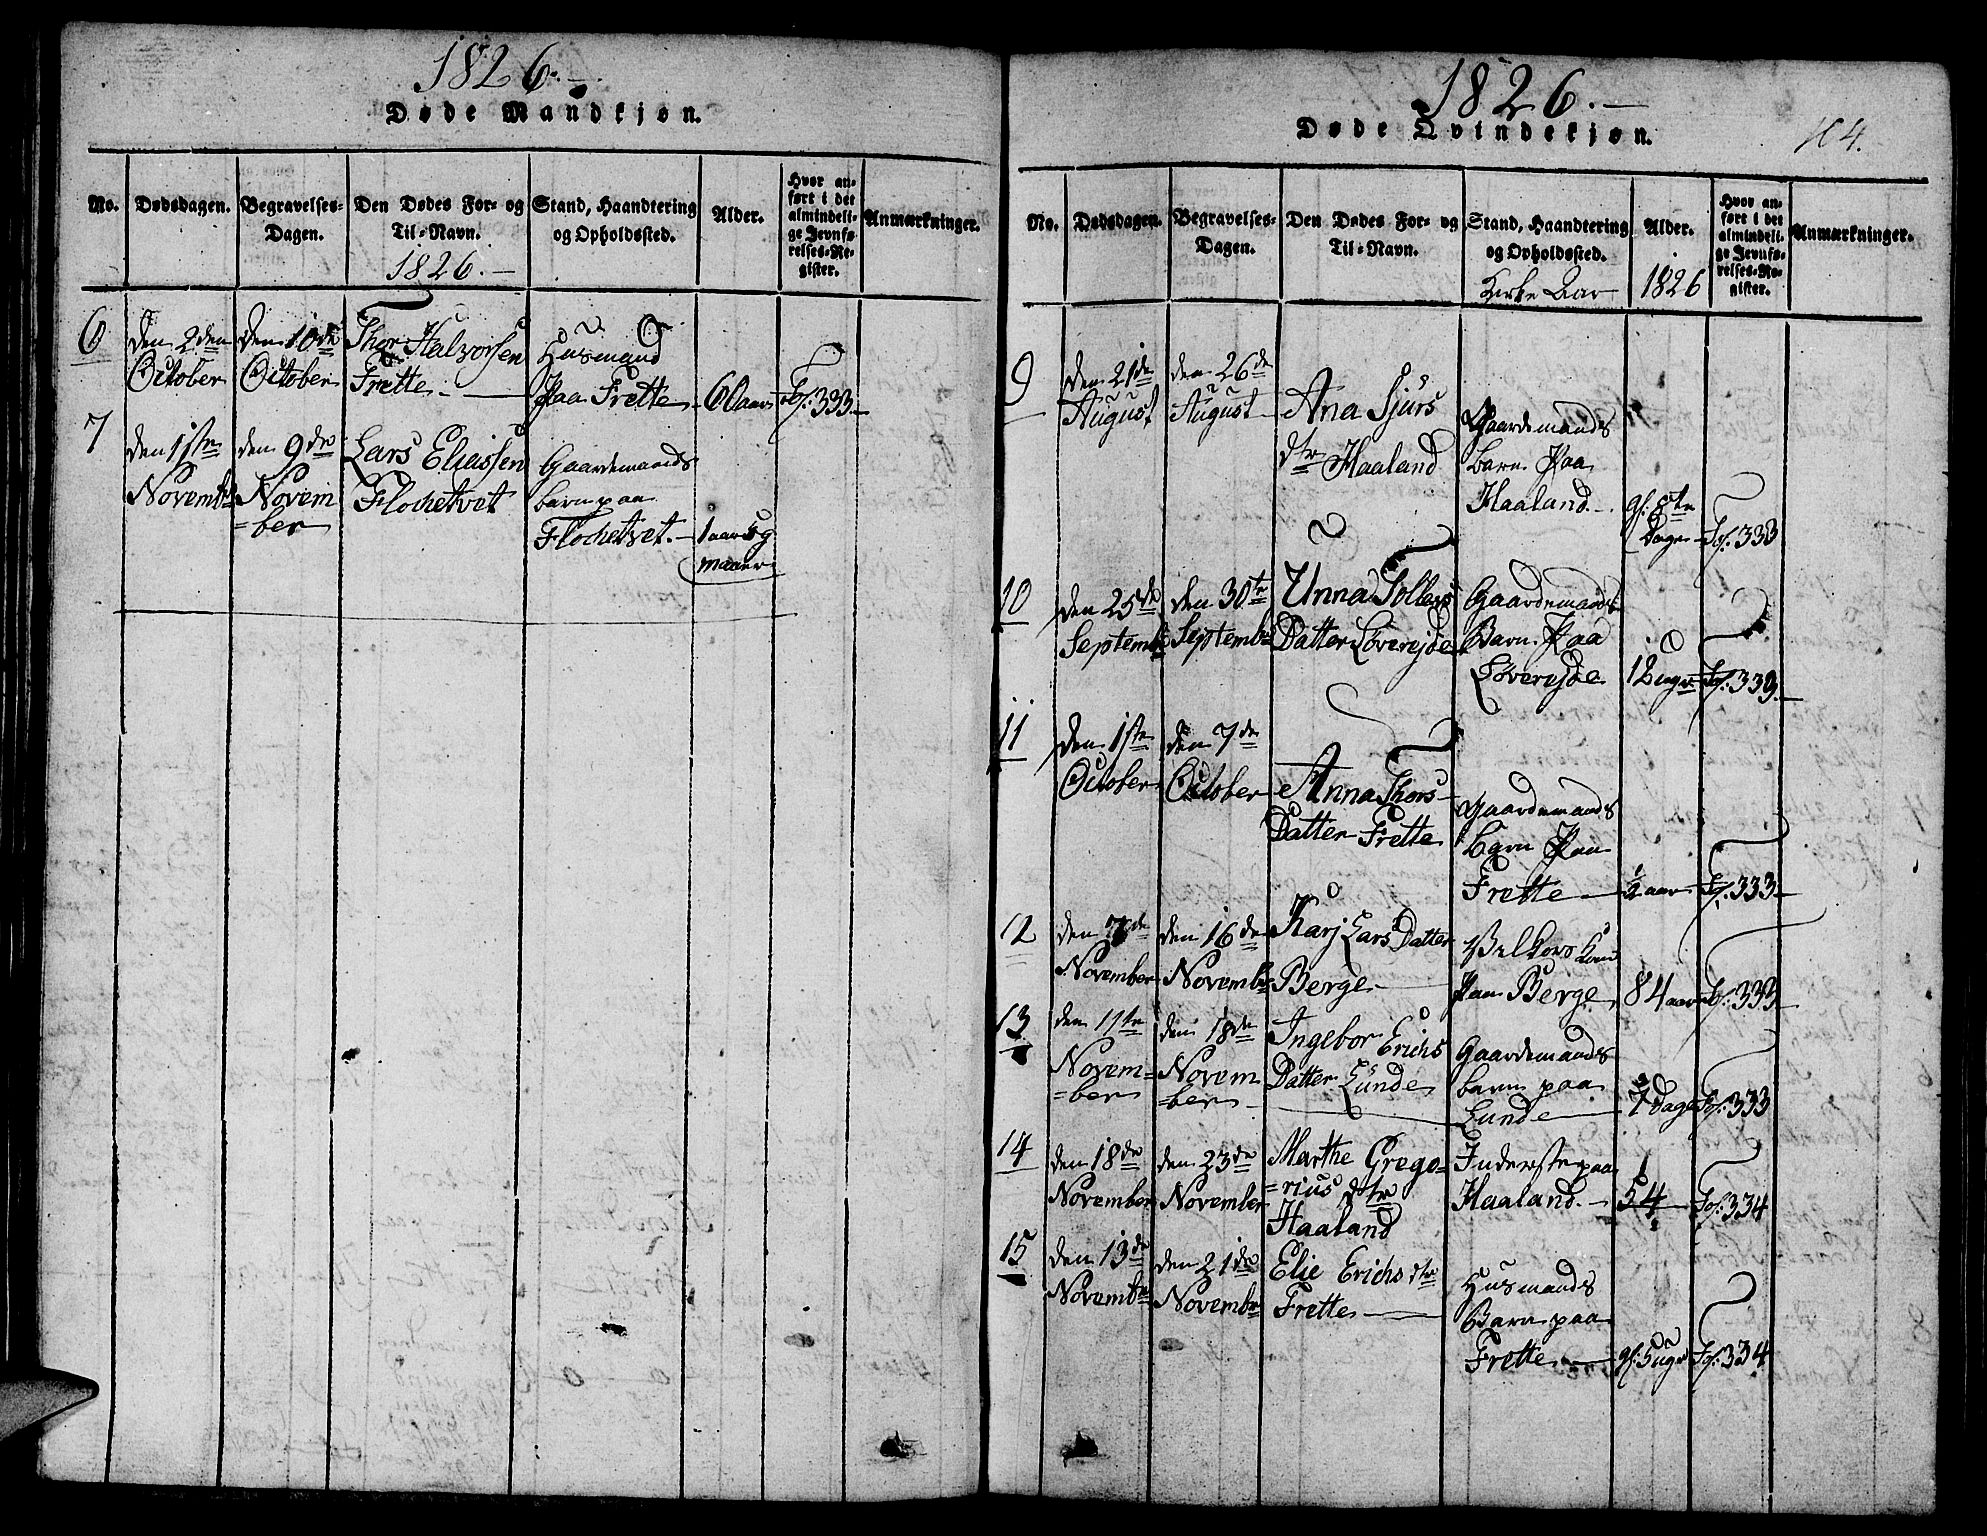 1826.-
Døde Mandkjøn.
No.
Dødsdagen.
Begravelses-
Dagen.
Den Dødes For- og
Til-Navn.
1826.-
Stand, Haandtering
og Opholdssted.
Alder.
Hvor an-
ført i det
almindeli-
ge Jevnfø-
relses-Re-
gister.
Anmærkninger.
6
den 2den
October
den 10de
October
Thor Halvorsen
Frette
Husmand
paa Frette
60 aar
Fol. 333
7
den 1ste
Novembr
den 9de
Novem
=ber
Lars Eliassen
Flochetvet
Gaardemands
barn paa
Flochetvet.
1 aar og
maaner
1826.-
Døde Qvindekjøn.
104.
No.
Dødsdagen.
Begravelses-
Dagen.
Den Dødes For- og
Til-Navn.
Stand, Haandtering
og Opholdssted.
Kirke Aar
Alder.
1826
Hvor an-
ført i det
almindeli-
ge Jevnfø-
relses-Re-
gister.
Anmærkninger.
9
den 21de
August
den 26de
August
Ana Sjurs
dtr Haaland
Gaardemands
barn Paa
Haaland.
8te
Dage
Fol. 333
10
den 25de
Septembr
den 30te
Septembr
Unna Tollevs
Datter Løverejde
Gaardemands
Barn Paa
Løverejde
12 uger
Fol. 333.
11
den 1ste
October
den 7de
October
Anna Thors-
Datter Frette
Gaardemands
barn Paa
Frette
1/2 aar
Fol. 333
12
den 7de
November
den 16de
Novembr
Karj Lars Datter
Berge
Vilkors Kone
paa Berge
84 aar
Fol. 333
13
den 11te
Novem=
=ber
den 18de
Novem
=ber
Ingebor Erichs
Datter Lunde
Gaardemands
barn paa
Lunde
7 Dage
Fol. 333
14
den 18de
November
den 23de
November
Marthe Grego=
=rius dtr
Haaland
Inderste paa
Haaland.
54
Fol. 334
15
den 13de
Novembr
den 21de
Novembr
Elie Erichs dtr
Frette
Husmands
Barn paa
Frette
5 uger
Fol. 334